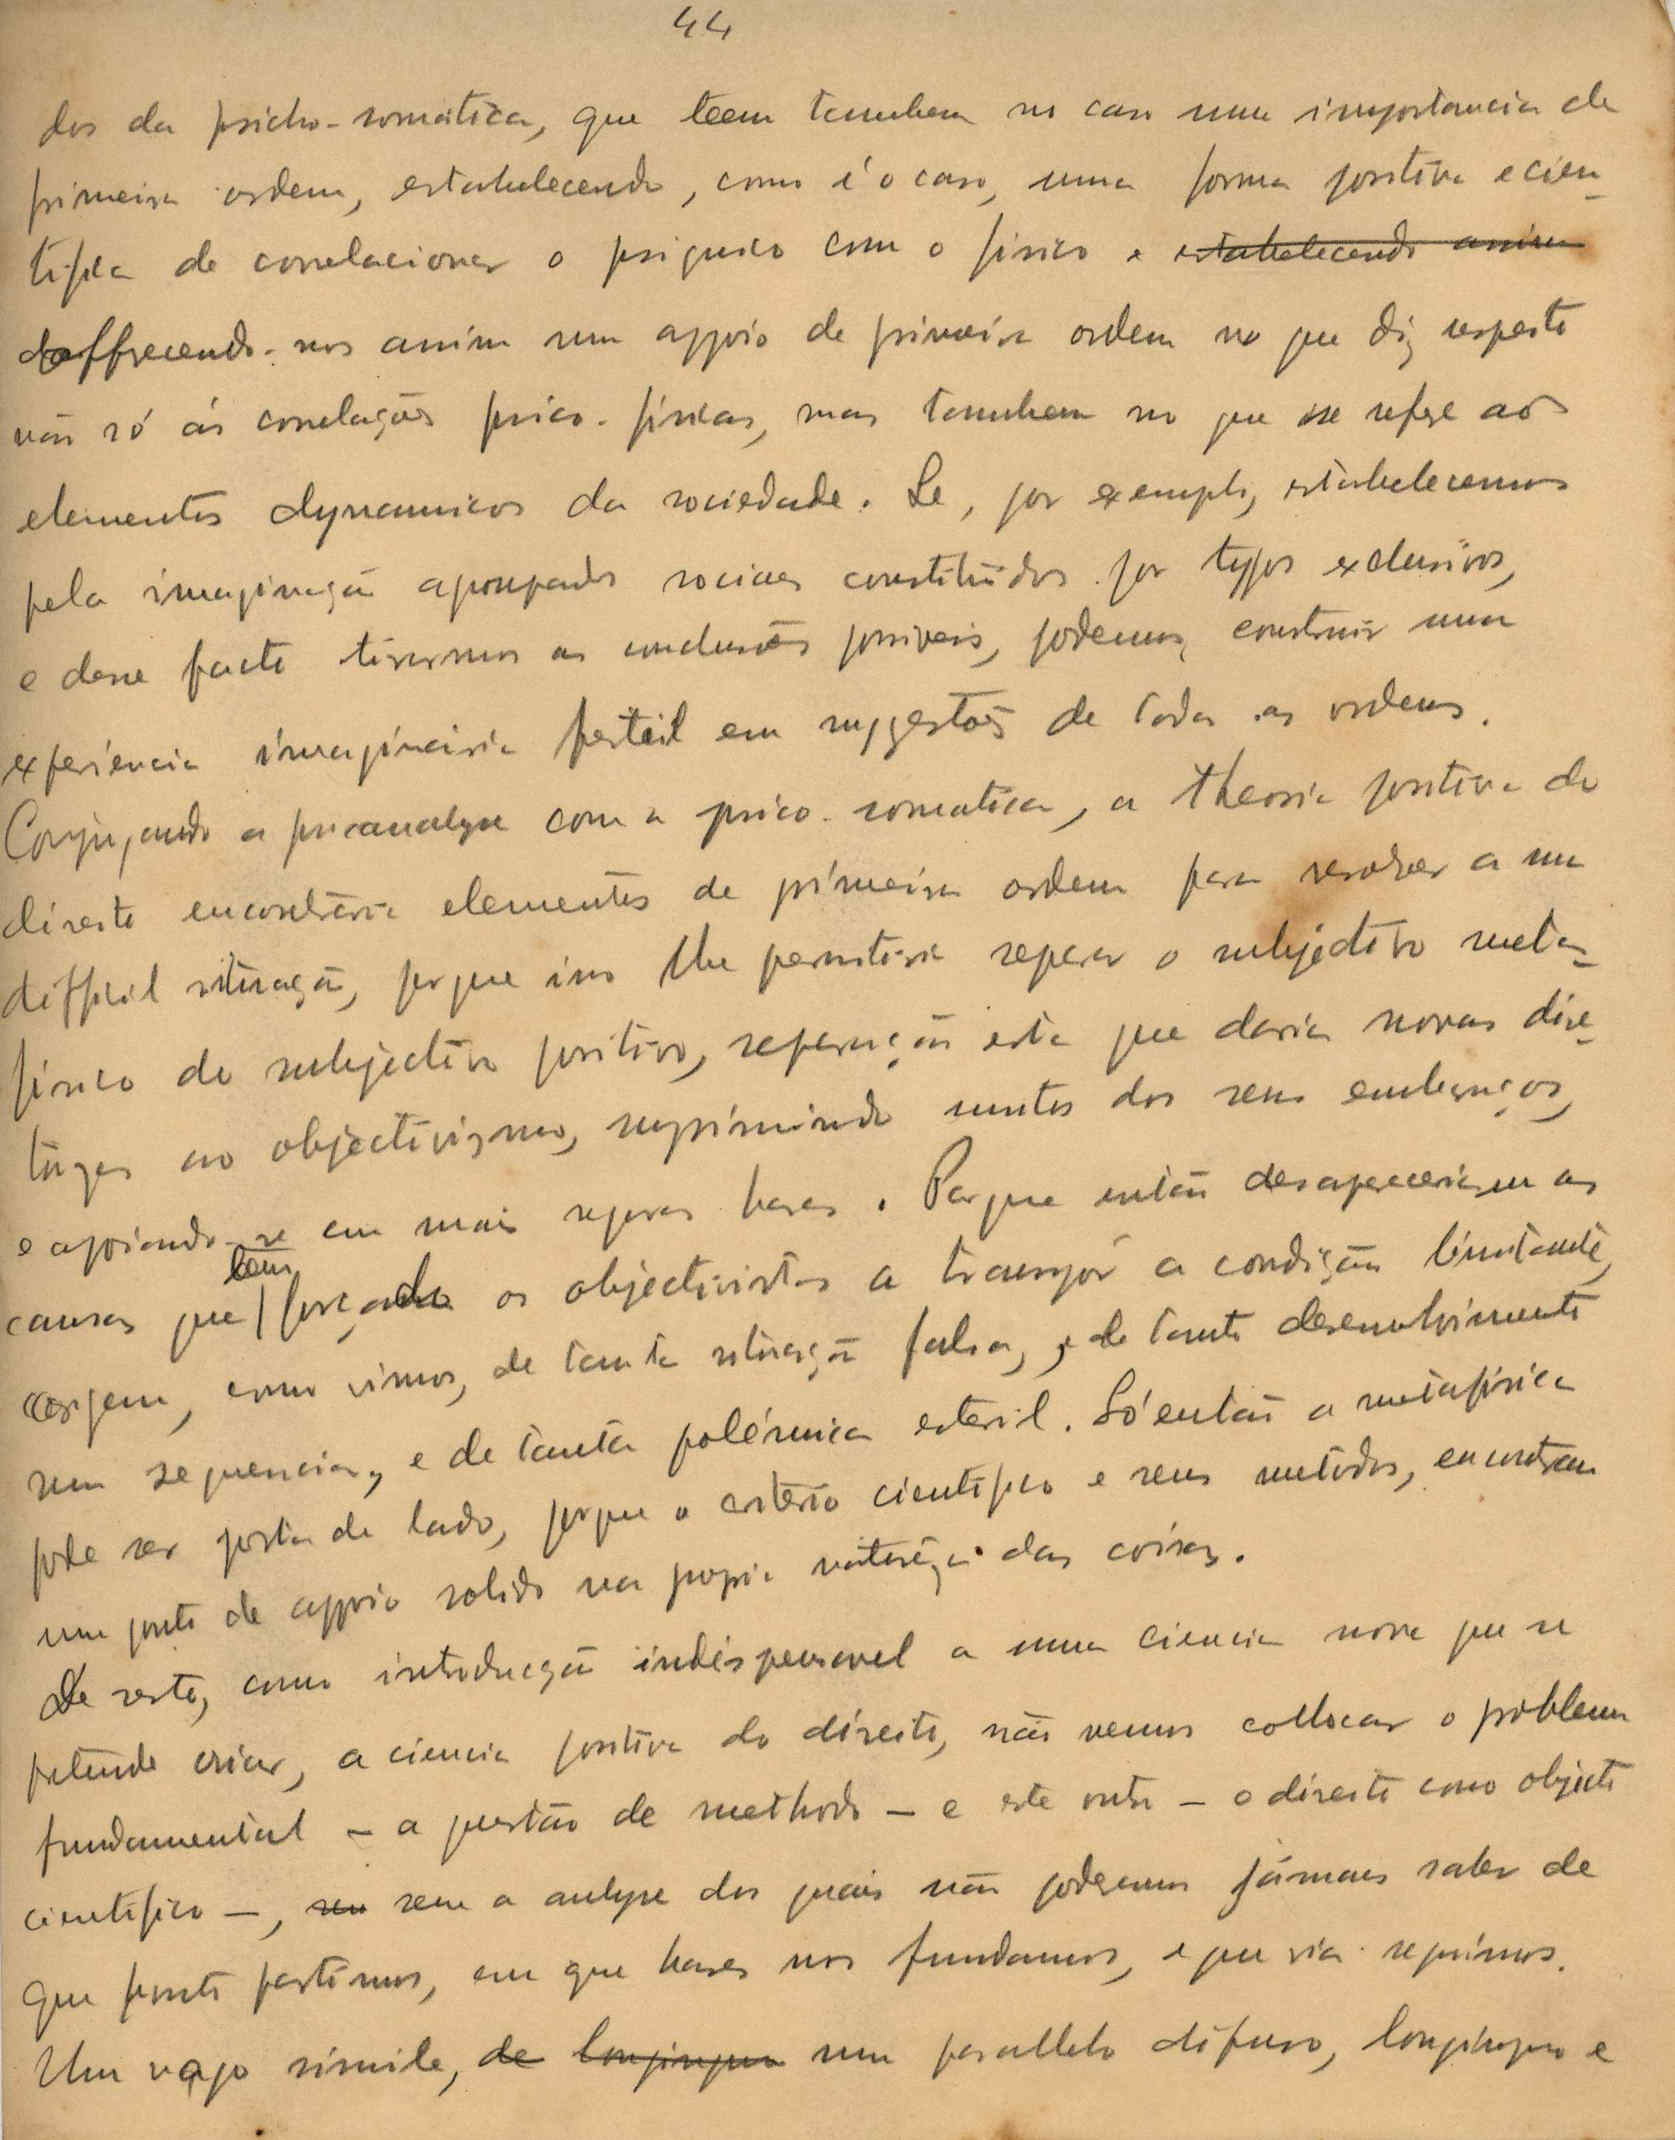 44
dos da psicho-somática, que teem tambem no caso uma importancia de
primeira ordem, estabelecendo, como é o caso, uma forma positiva e cien-
tifica de correlacionar o psiquico com o fisico e estabelecendo assim
offrecendo-nos assim um appoio de primeira ordem no que diz respeito
não só ás correlações psico-fisicas, mas tambem no que se refere aos
elementos dynamicos da sociedade. Se, por exemplo, estabelecemos
pela imaginação agrupados sociaes constituidos por typos exclusivos,
e desse facto tirarmos as conclusões possiveis, podemos construir uma
experiencia imaginaria fertil em suggestões de todas as ordens.
Conjugando a psicanalyse com a psico-somatica, a theoria positiva do
direito encontraria elementos de primeira ordem para resolver a sua
difficil situação, porque isso lhe permitiria separar o subjectivo meta-
fisico do subjectivo positivo, separação esta que daria novas dire-
ao objectivismo, supprimindo muitos dos seus embaraços,
e appoiando-se em mais seguras bases. Porque então desappareceriam as
causas que teem forçado os objectivistas a transpôr a condição limitante,
origem, como vimos, de tanta situação falsa, e de tanto desenvolvimento
sem sequencia, e de tanta polémica esteril. Só então a metafisica
pode ser posta de lado, porque o criterio cientifico e seus metodos, encontram
um ponto de appoio solido na propria natureza das coisas.
De resto, como introducção indispensavel a uma ciencia nova que se
pretende criar, a ciencia positiva do direito, não vemos collocar o problema
fundamental – a questão de methodo – e este outro – o direito como objecto
cientifico –, sem sem a analyse dos quais não poderemos jámais saber de
que ponto partimos, em que bases nos fundamos, e que via seguimos.
Um vago simile, de longinquo um parallelo difuso, longinquo e